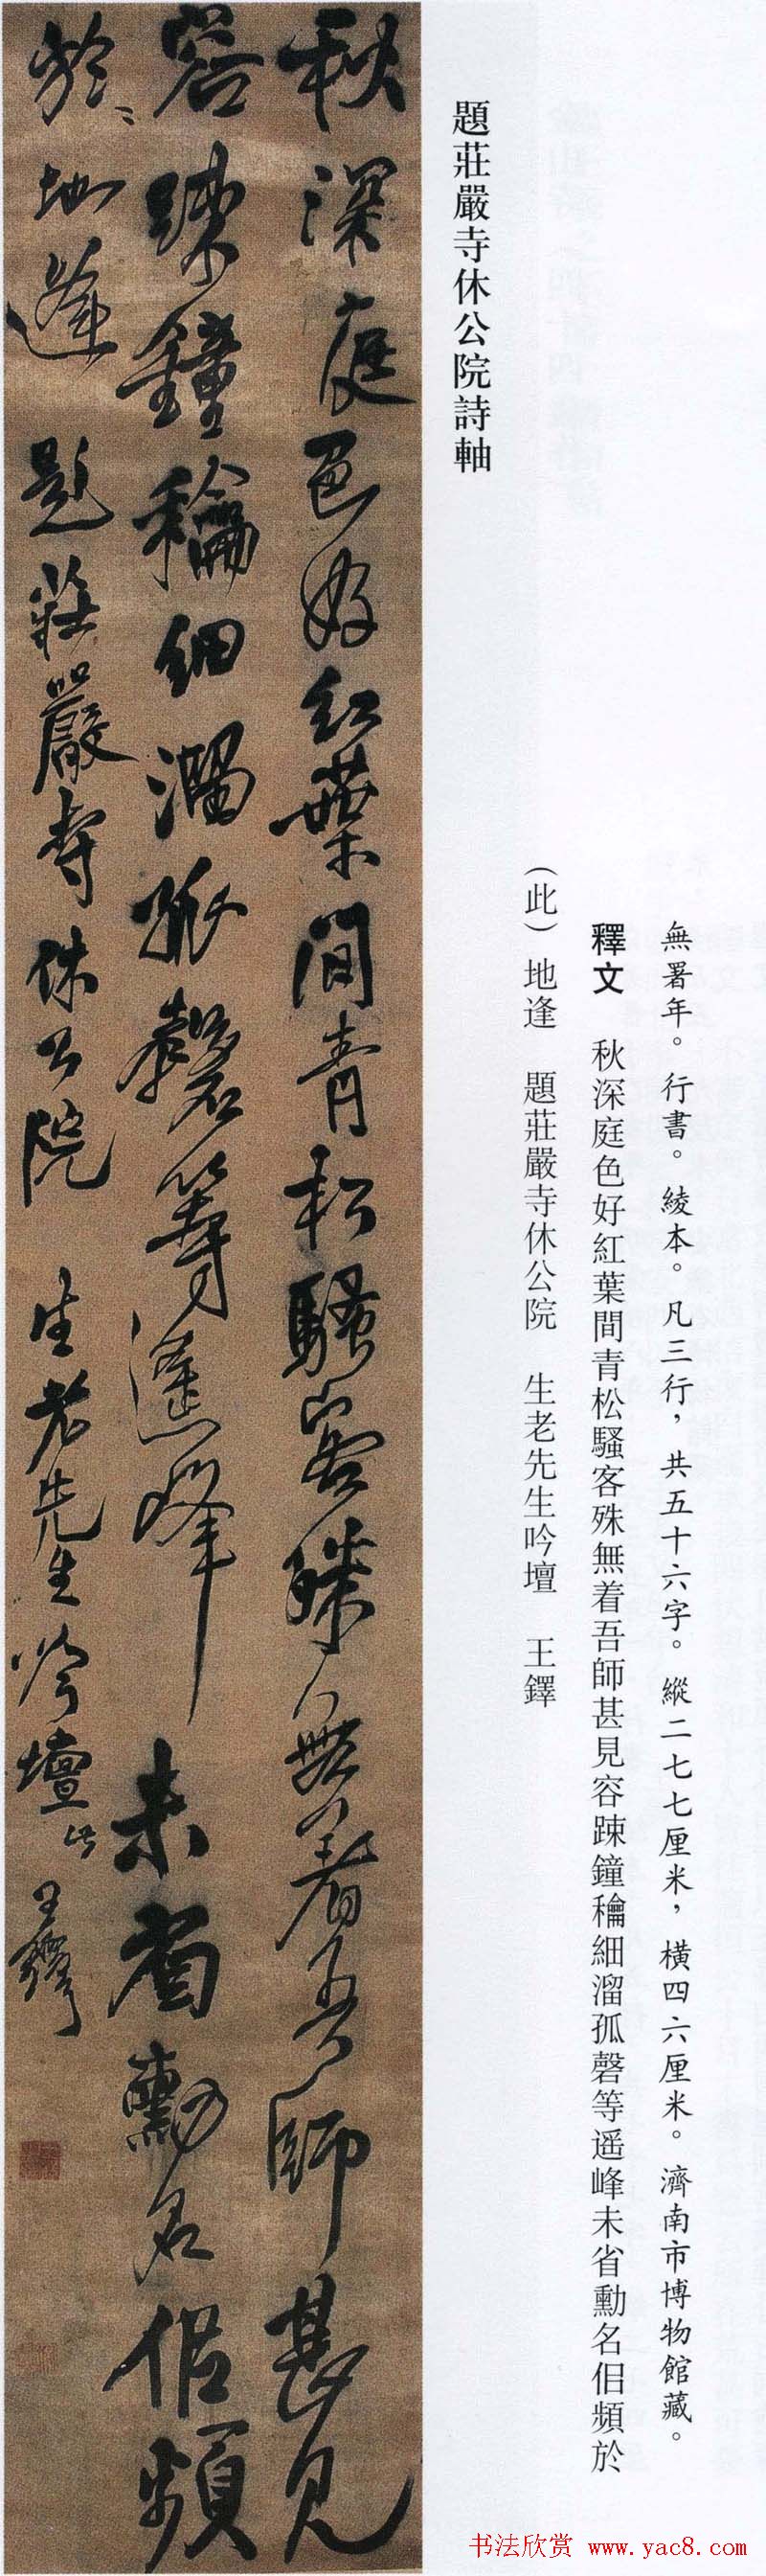 秋深庭色好紅葉間青松騷客殊無着吾師甚見
容踈鐘穐細溜孤磬等遥峰未省勳名侶頻
於地逢 題莊嚴寺休公院 生老先生吟壇 王鐸
題莊嚴寺休公院詩軸
無署年。行書。綾本。凡三行，共五十六字。縱二七七厘米，橫四六厘米。濟南市博物館藏。
釋文 秋深庭色好紅葉間青松騷客殊無着吾師甚見容踈鐘穐細溜孤磬等遥峰未省勳名侶頻於
（此）地逢 題莊嚴寺休公院 生老先生吟壇 王鐸
书法欣赏 www.yac8.com